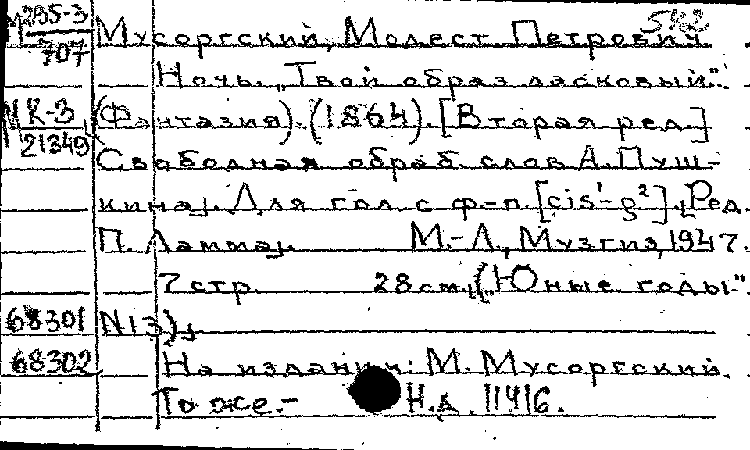 М 285-3
707
542
Мусоргский, Модест Петрович
Ночь. „Твой образ ласковый“.
М К-3
21349
(Фантазия). (1864). [Вторая ред.]
Свободная обраб. слов А. Пуш-
кина. Для гол. с ф-п. [cis¹-g²]. Ред.
П. Ламма. М.-Л., Музгиз, 1947.
7 стр. 28 см. („Юные годы“.
68301 N13).
68302 На издании: М. Мусоргский.
То же.- Н.д. 11416.